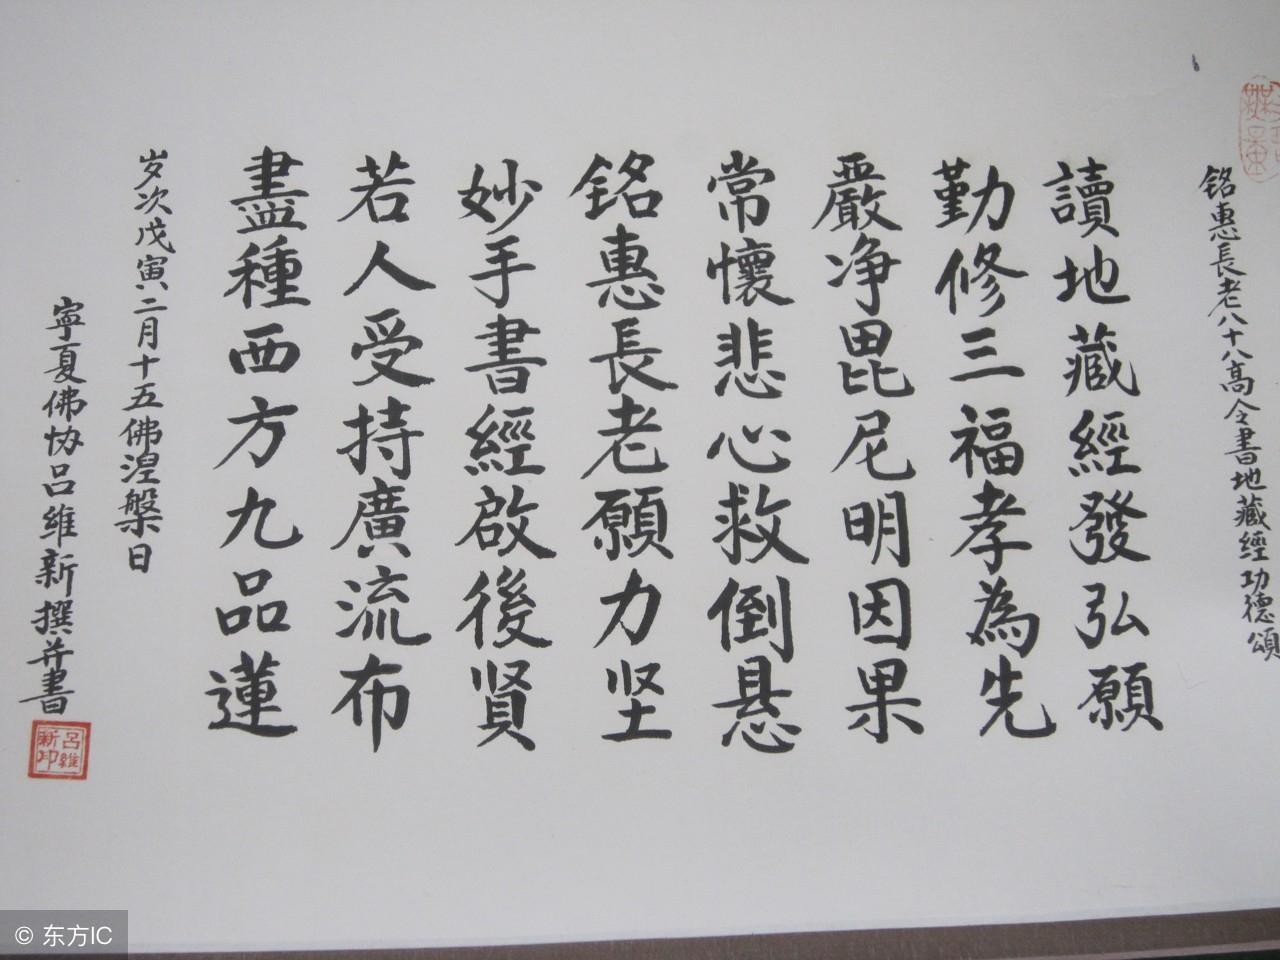 銘惠長老八十八高令書地藏經功德頌
讀地藏經發弘願
勤修三福孝為先
嚴净毘尼明因果
常懷悲心救倒悬
銘惠長老願力坚
妙手書經啟後賢
若人受持廣流布
盡種西方九品蓮
岁次戊寅二月十五佛涅槃日
寧夏佛协吕維新撰并書
吕維新印
© 东方IC